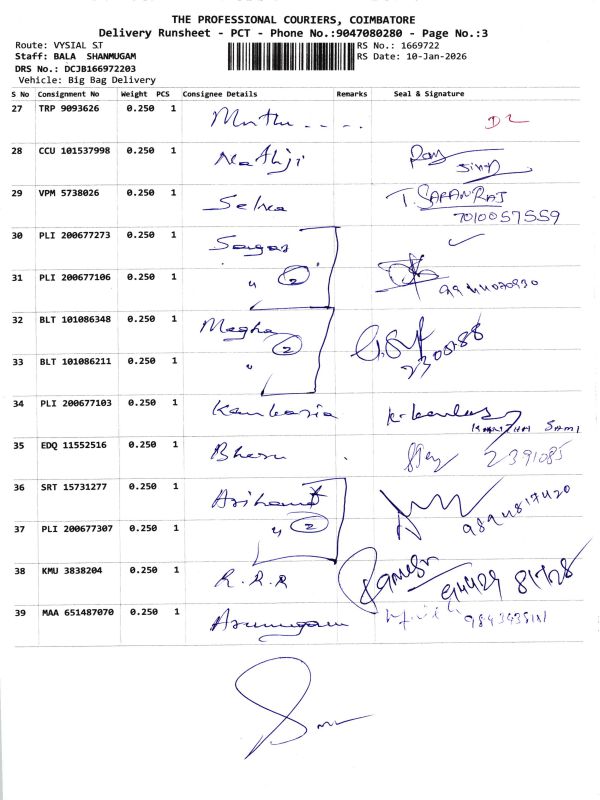 THE PROFESSIONAL COURIERS, COIMBATORE
Delivery Runsheet - PCT - Phone No.:9047080280 - Page No.:3
Route: VYSIAL S.T
RS No.: 1669722
Staff: BALA SHANMUGAM
RS Date: 10-Jan-2026
DRS No.: DCJB166972203
Vehicle: Big Bag Delivery
S No Consignment No Weight PCS Consignee Details Remarks Seal & Signature
27 TRP 9093626 0.250 1 Muthu D2
28 CCU 101537998 0.250 1 Nathji
29 VPM 5738026 0.250 1 Selva T. SARANRAJ
7010057559
30 PLI 200677273 0.250 1 Sagar
31 PLI 200677106 0.250 1 " 2
32 BLT 101086348 0.250 1 Megha
2
33 BLT 101086211 0.250 1 "
34 PLI 200677103 0.250 1
35 EDQ 11552516 0.250 1 2391085
36 SRT 15731277 0.250 1 Arihant
37 PLI 200677307 0.250 1 " 2 9894817420
38 KMU 3838204 0.250 1 R.R.R Ramesh
39 MAA 651487070 0.250 1 Arumugam